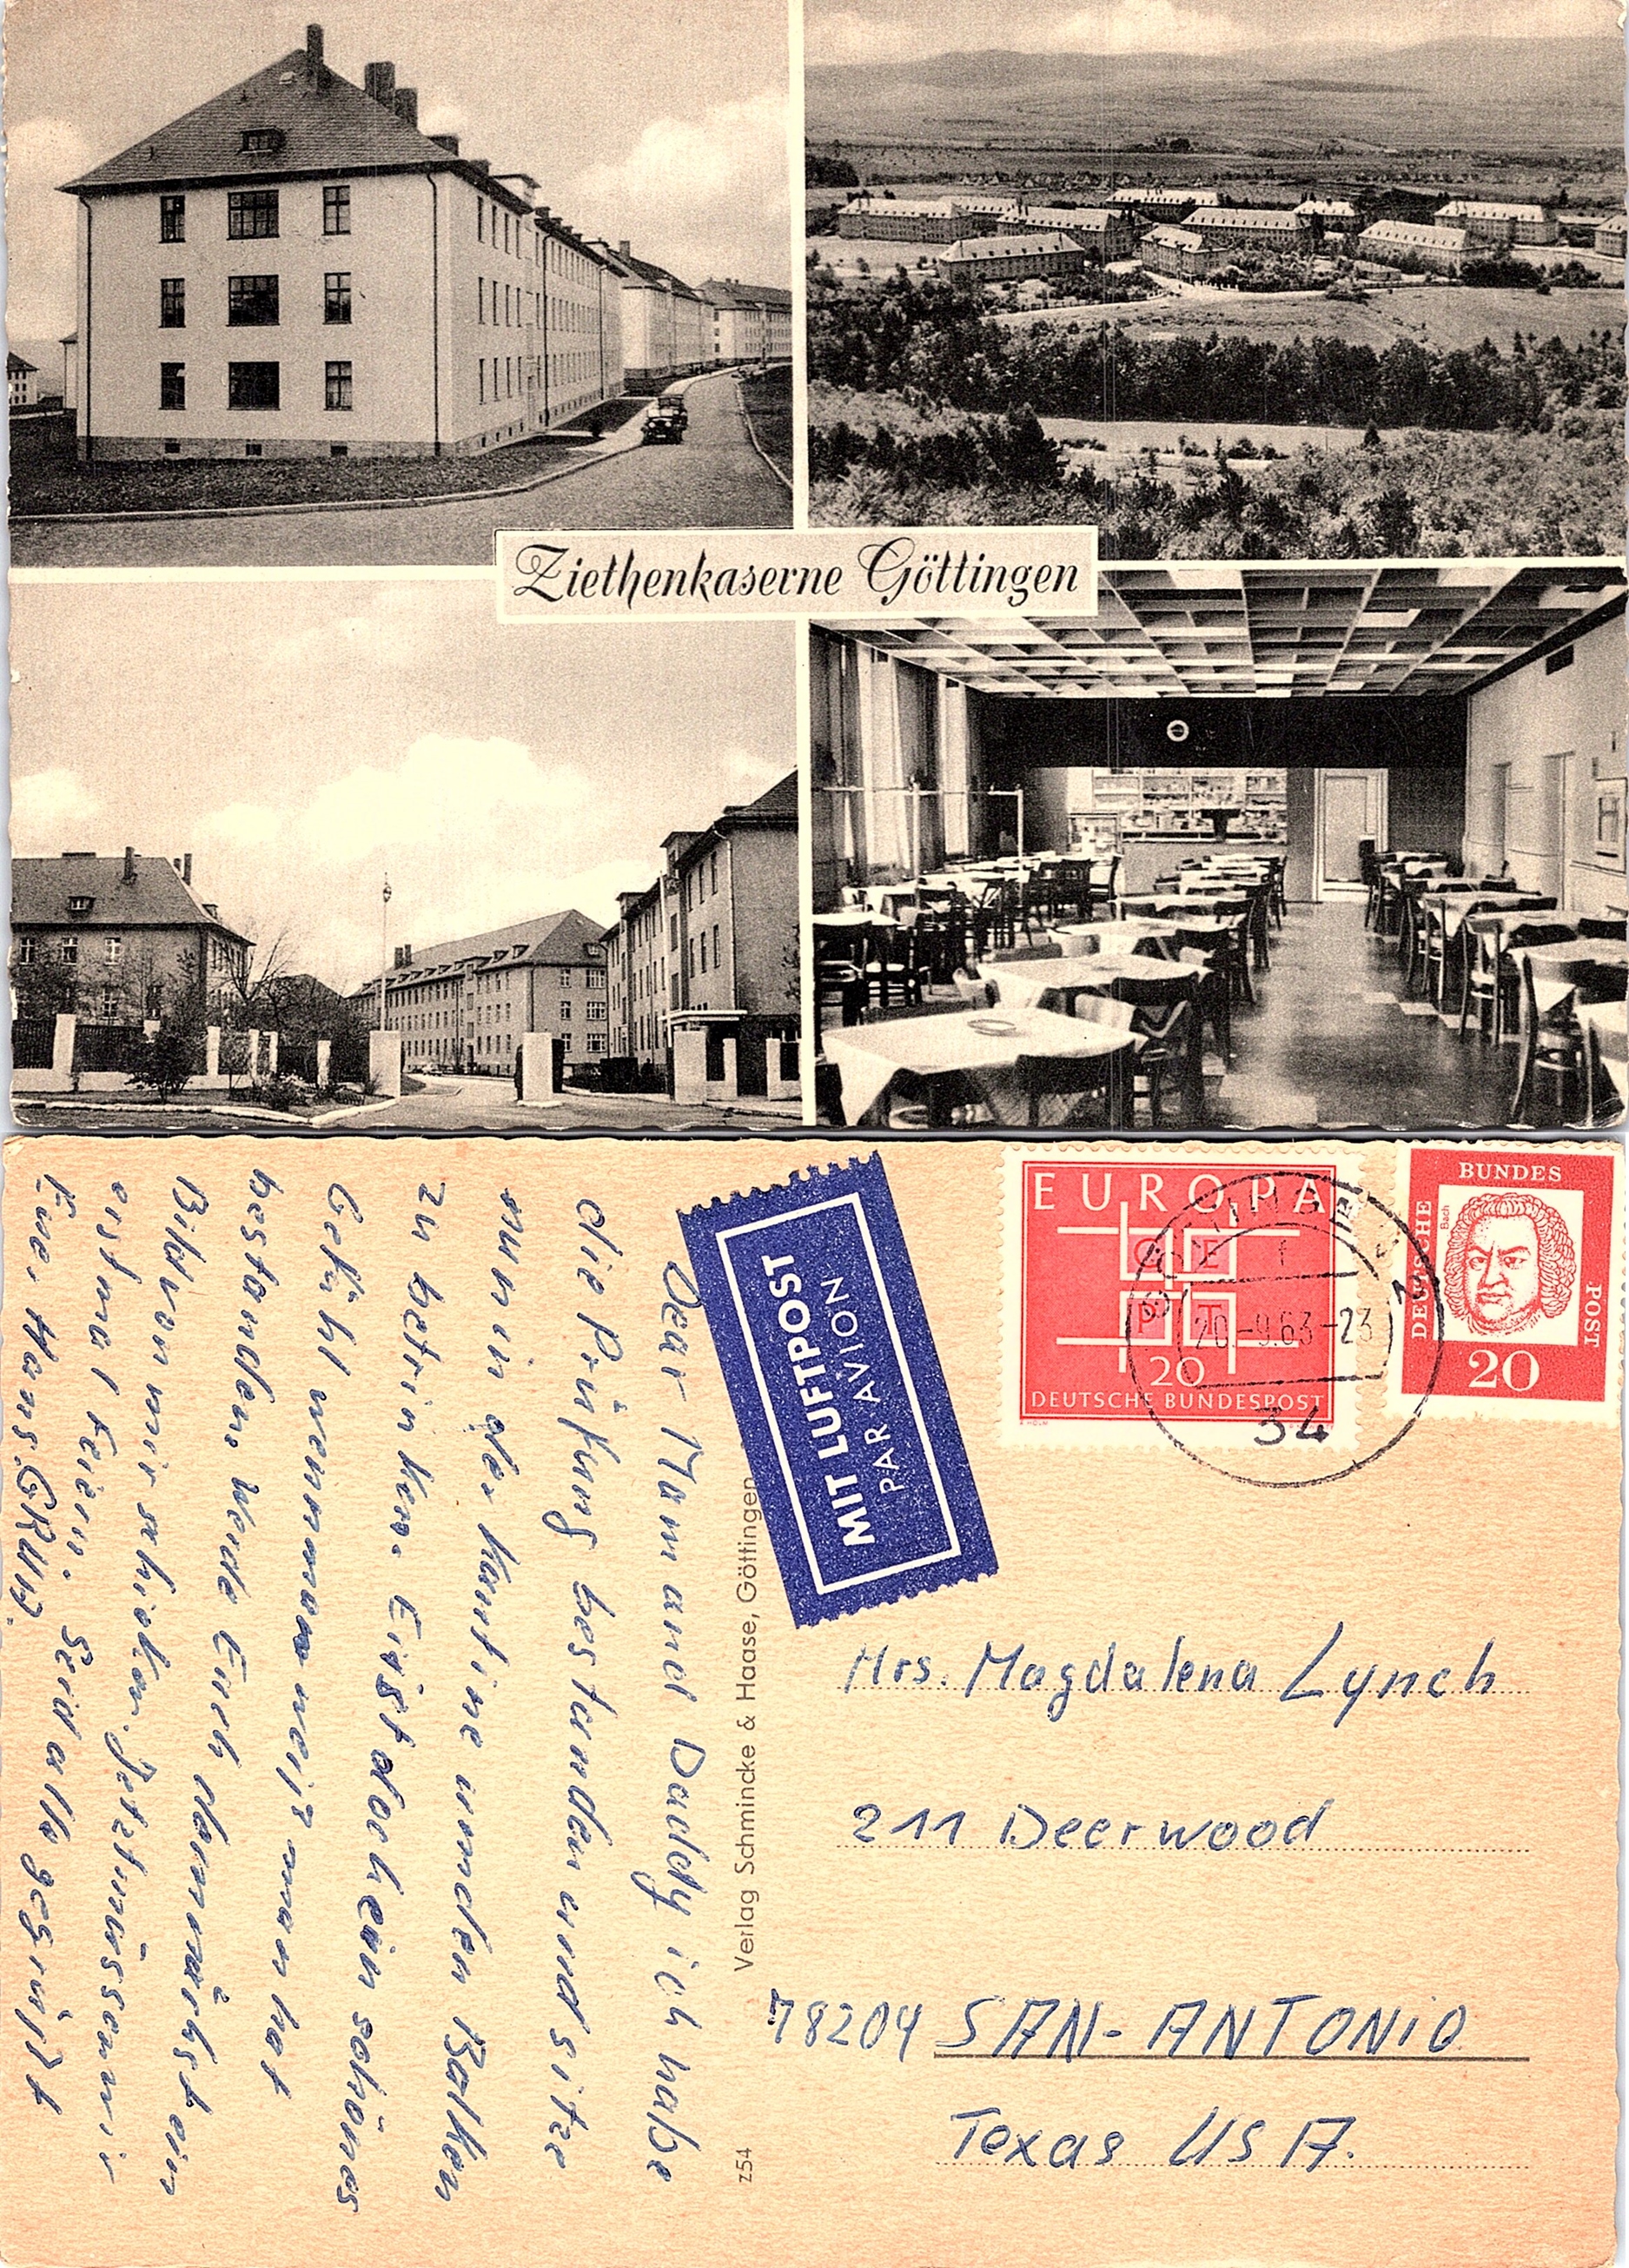 Ziethenkaserne Göttingen
MIT LUFTPOST
PAR AVION
EUROPA
CEPT
20
DEUTSCHE BUNDESPOST
BUNDES
DEUTSCHE
POST
Bach
20
20.-9.63-23
34
Dear Mam and Daddy ich habe
die Prüfung bestanden und sitze
nun in der Kantine um den Balken
zu betrinken. Eißt doch ein schönes
Gefühl wenn man weiß man hat
bestanden. Werde Euch demnächst ein
Bild von mir schicken. Jetzt müssen wir
erstmal feiern. Seid alle gegrüßt
Eure, Hans.
Verlag Schmincke & Haase, Göttingen
z54
Mrs. Magdalena Lynch
211 Deerwood
78204 SAN-ANTONIO
Texas USA.